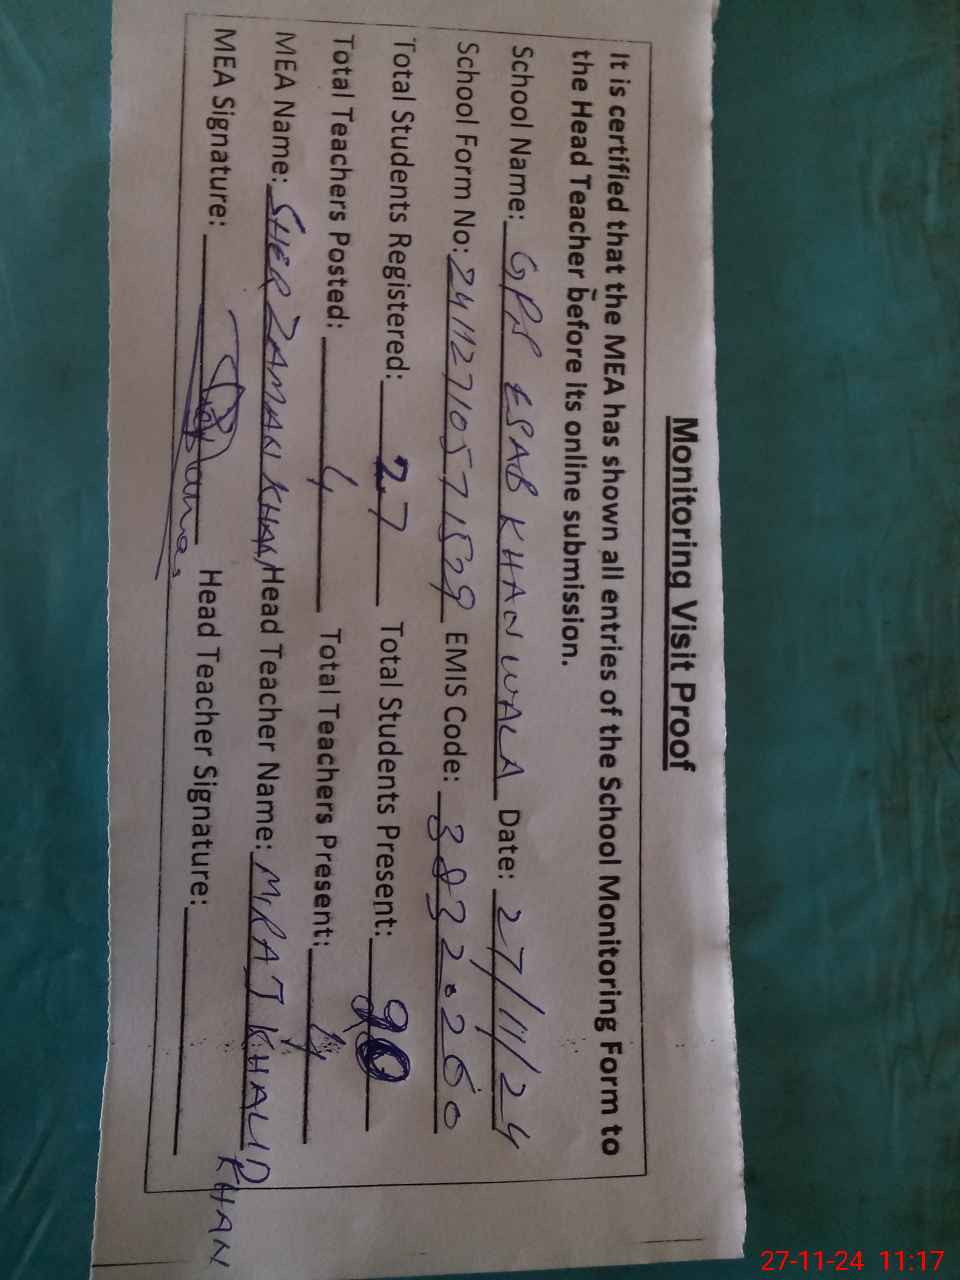 Monitoring Visit Proof
It is certified that the MEA has shown all entries of the School Monitoring Form to
the Head Teacher before its online submission.
School Name: GPS ESAB KHAN WALA Date: 27/11/24
School Form No: 24112710571539 EMIS Code: 38320260
Total Students Registered: 27 Total Students Present:
Total Teachers Posted: 4 Total Teachers Present: 4
MEA Name: SHER ZAMAN KHAN Head Teacher Name: MIRAJ KHALID KHAN
MEA Signature: Head Teacher Signature:
27-11-24 11:17